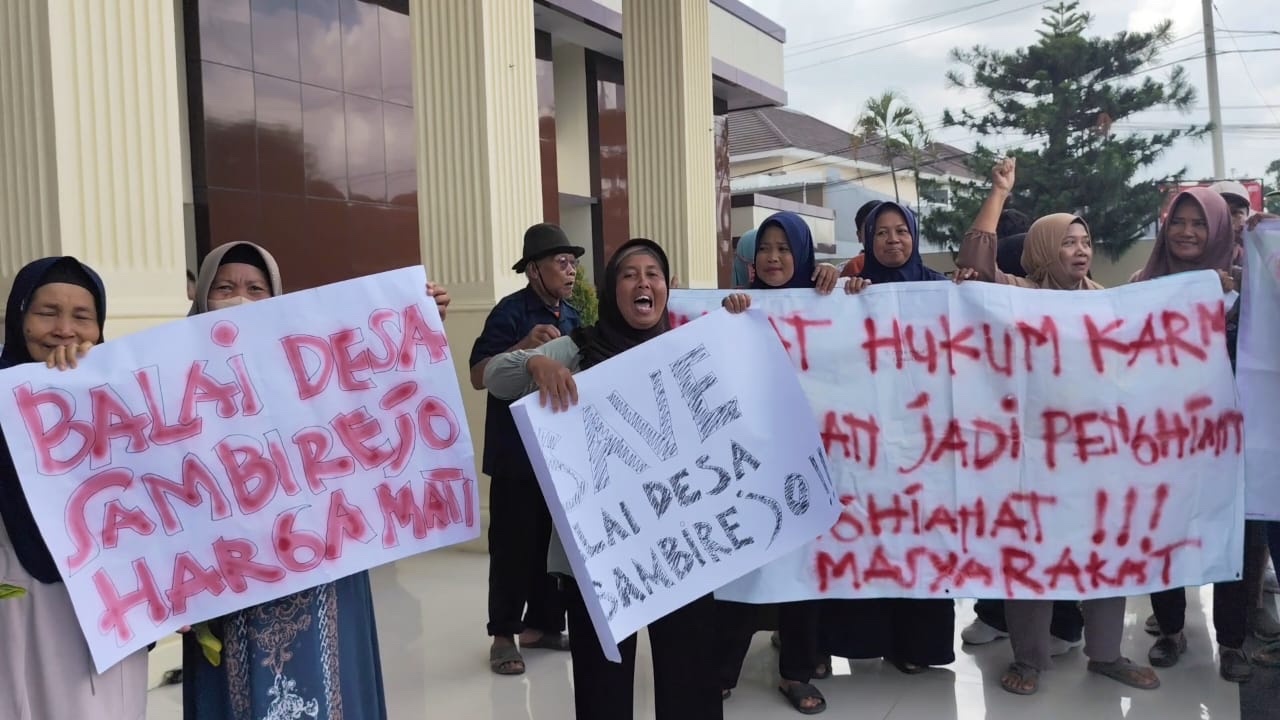 BALAI DESA
SAMBIREJO
HARGA MATI
SAVE
LAI DESA
SAMBIREJO!!
HUKUM KARM
JADI PENGHIANT
GHIAHAT !!!
MASYARAKAT